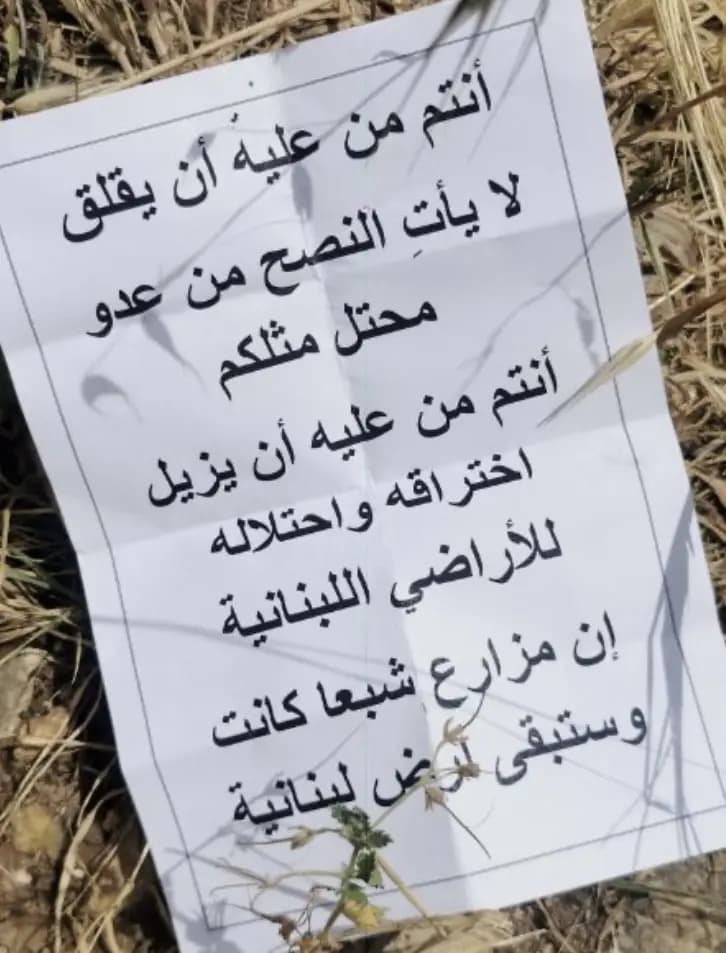 أنتم من عليهُ أن يقلق
لا يأتِ النصح من عدو
محتل مثلكم
أنتم من عليه أن يزيل
اختراقه واحتلاله
للأراضي اللبنانية
إن مزارع شبعا كانت
وستبقى أرض لبنانية